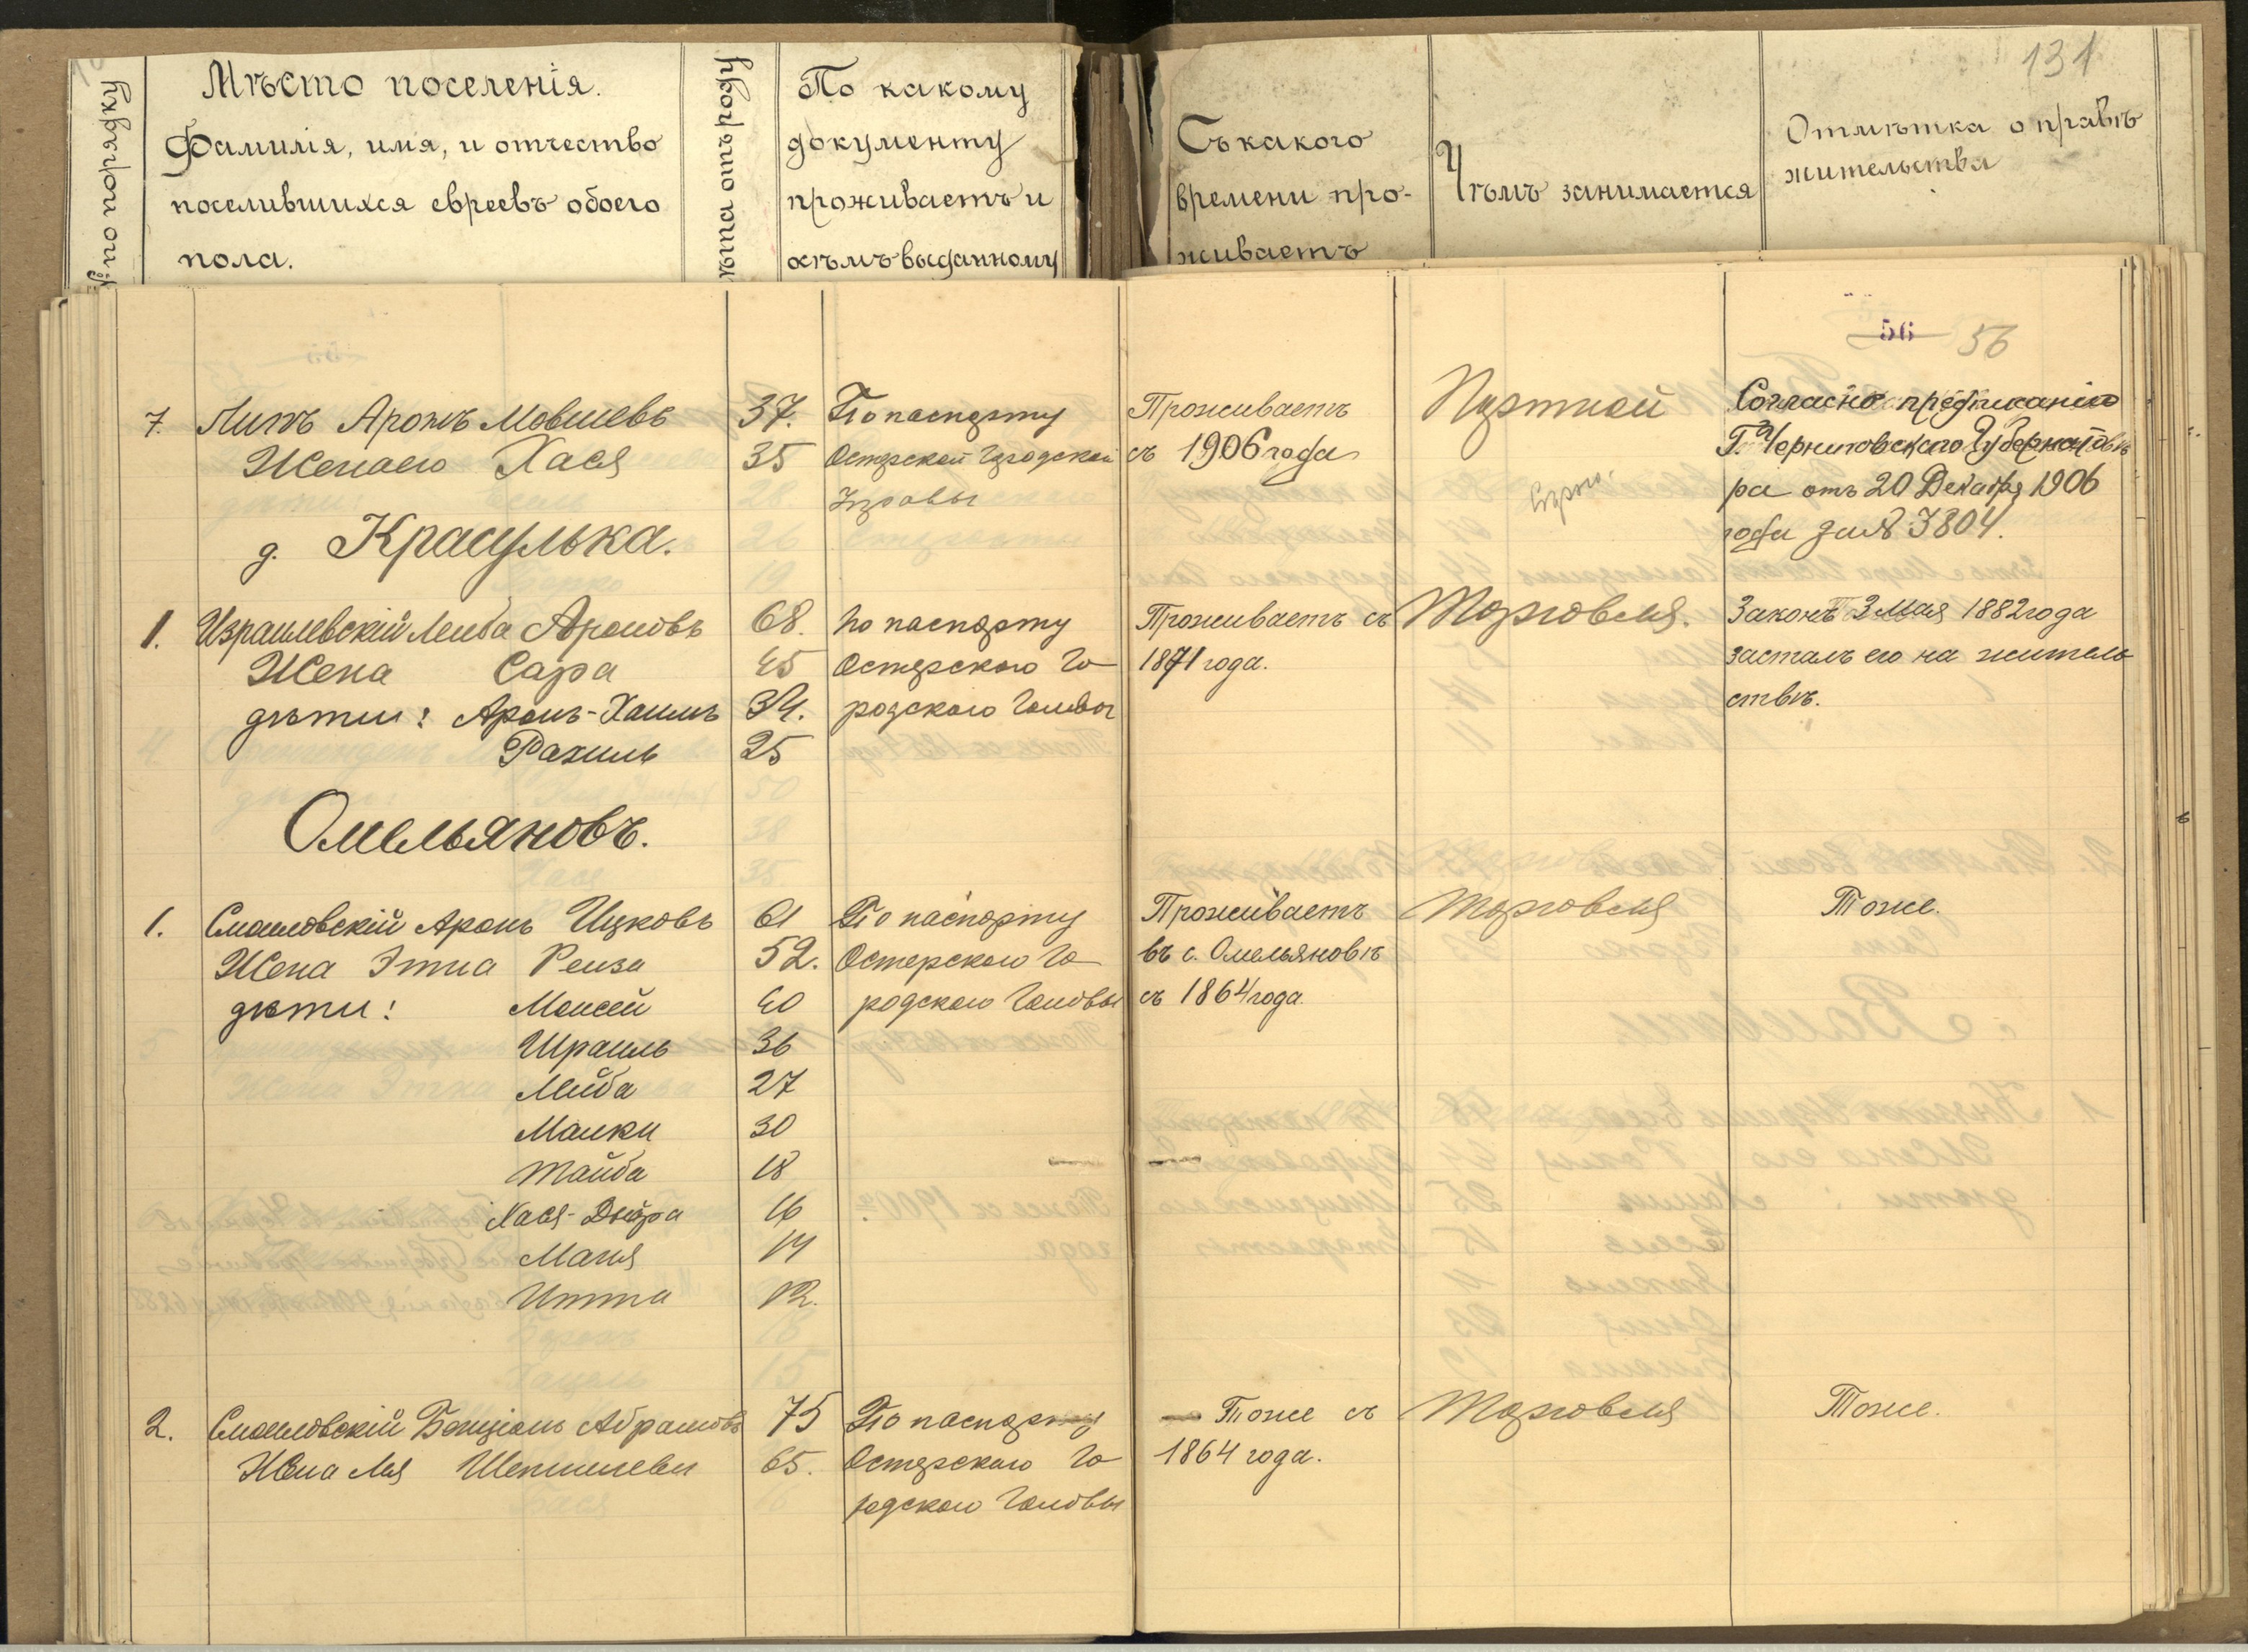 131
№ по порядку
Мѣсто поселенія.
Фамилія, имя, и отчество
поселившихся евреевъ обоего
пола.
лѣта отъ роду
По какому
документу
проживаетъ и
кѣмъ выданному
Съ какого
времени про-
живаетъ
Чѣмъ занимается
Отмѣтка о правѣ
жительства
56 56
7. Аронъ Мовшевъ 37. По паспорту Проживаетъ Портной Согласно предписанію
Жена его Хася 35 Остерской Городской съ 1906 года Г. Черниговскаго Губернато
Управы ра отъ 20 Декабря 1906
года за № 3804.
д. Красулька.
1. Израилевскій Лейба Ароновъ 68. по паспорту Проживаетъ съ Торговля. Законъ 3 Мая 1882 года
Жена Сара 45 Остерского Го 1871 года. засталъ его на житель
дѣти: Аронъ-Хаимъ 34. родского Головы ствѣ.
Рахиль 25
Омельяновъ.
1. Смоловскій Аронъ Ицковъ 61 По паспорту Проживаетъ Торговля Тоже.
Жена Этна Рейза 52. Остерского Го въ с. Омельяновѣ
дѣти: Моисей 40 родского Головы съ 1864 года
Шраиль 36
Лейба 27
Манки 30
Тайба 18
Хася-Двейра 16
Маня 14
Итта 12.
2. Смоловскій Бенціонъ Абрамовъ 75 По паспорту Тоже съ Торговля Тоже.
Жена Лея 65. Остерского Го 1864 года.
родского Головы